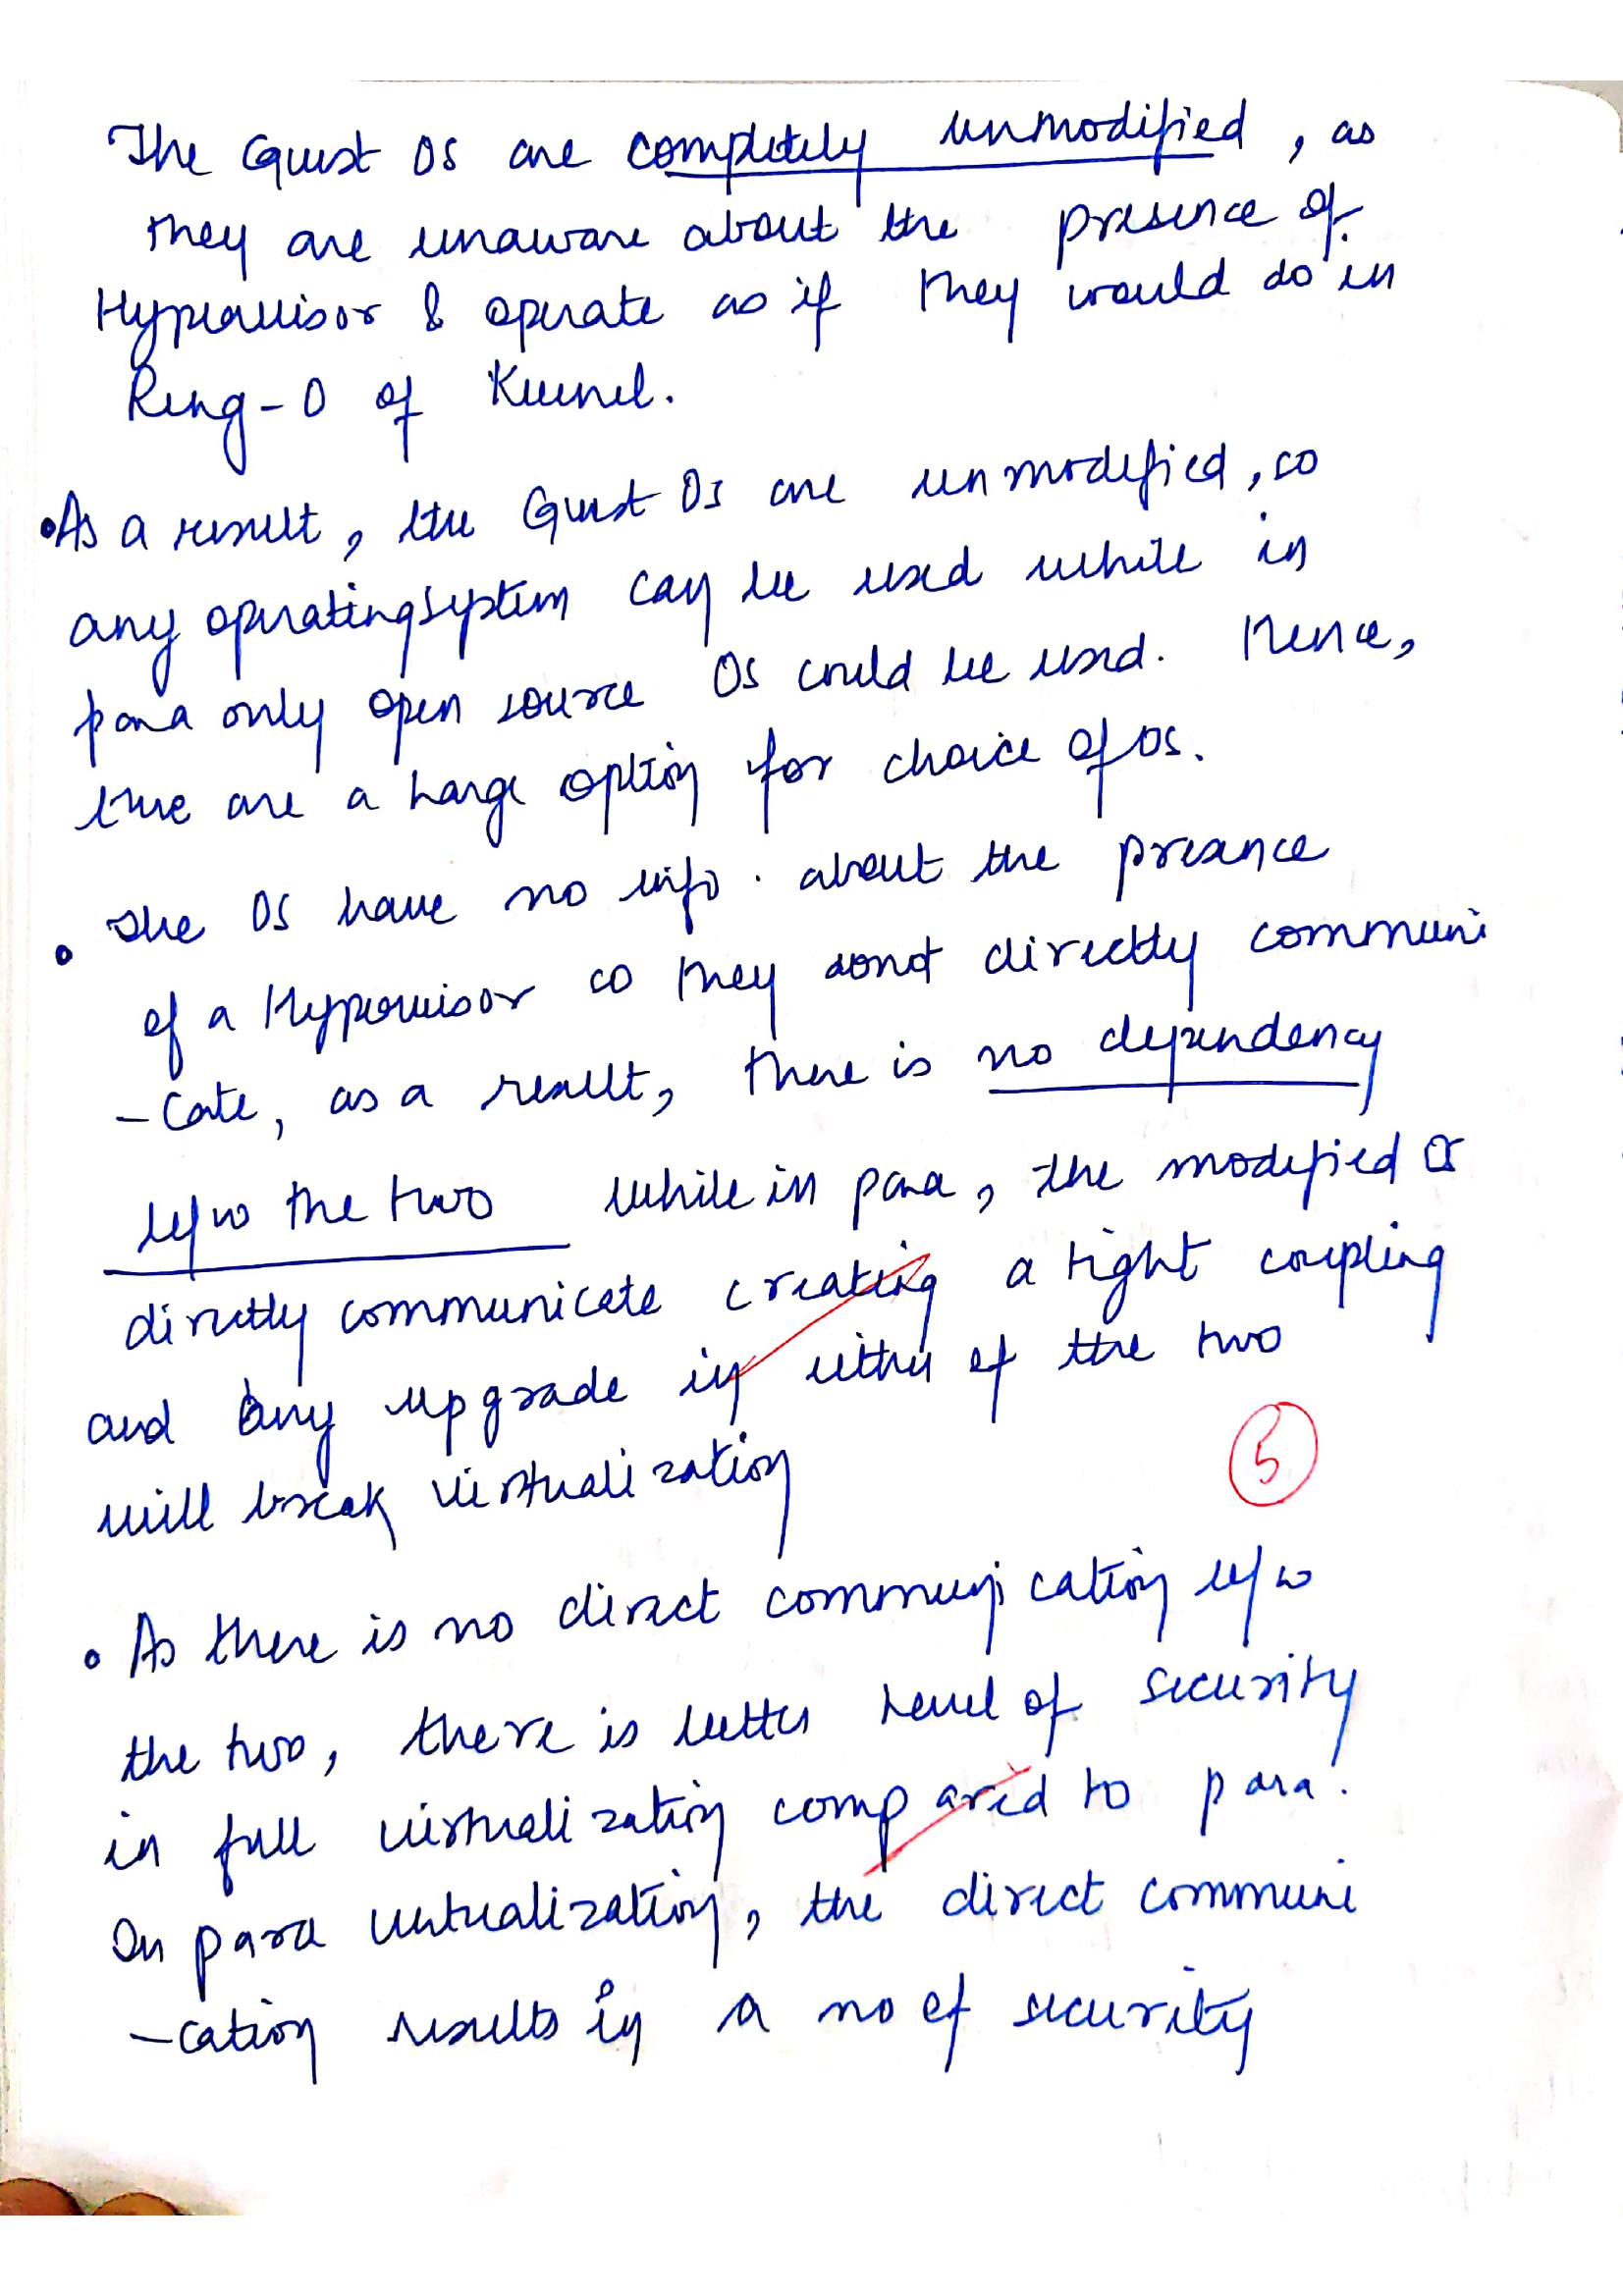 The Guest OS are completely unmodified, as
they are unaware about the presence of
Hypervisor & operate as if they would do in
Ring-0 of Kernel.
•As a result, the Guest OS are unmodified, so
any operating system can be used while in
para only open source OS could be used. Hence,
there are a large option for choice of OS.
• The OS have no info. about the presence
of a Hypervisor so they donot directly communi
-cate, as a result, there is no dependency
b/w the two while in para, the modified OS
directly communicate creating a tight coupling
and any upgrade in either of the two
will break virtualization
5
• As there is no direct communication b/w
the two, there is better level of security
in full virtualization compared to para.
In para virtualization, the direct communi
-cation results in a no of security